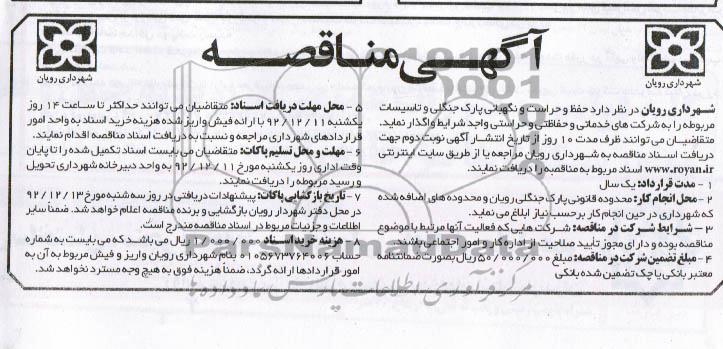 آگهـی مناقصـه
شهرداری رویان
شهرداری رویان
شهرداری رویان در نظر دارد حفظ و حراست و نگهبانی پارک جنگلی و تاسیسات
مربوطه را به شرکت های خدماتی و حفاظتی و حراستی واجد شرایط واگذار نماید.
متقاضیان می توانند ظرف مدت ۱۰ روز از تاریخ انتشار آگهی نوبت دوم جهت
دریافت اسناد مناقصه به شهرداری رویان مراجعه یا از طریق سایت اینترنتی
www.royan.ir اسناد مربوط به مناقصه را دریافت نمایند.
۱ - مدت قرارداد: یک سال
۲ - محل انجام کار: محدوده قانونی پارک جنگلی رویان و محدوده های اضافه شده
که شهرداری در حین انجام کار برحسب نیاز ابلاغ می نماید.
۳ - شرایط شرکت در مناقصه: شرکت هایی که فعالیت آنها مرتبط با موضوع
مناقصه بوده و دارای مجوز تأیید صلاحیت از اداره کار و امور اجتماعی باشند.
۴ - مبلغ تضمین شرکت در مناقصه: مبلغ ۵۰/۰۰۰/۰۰۰ ریال بصورت ضمانتنامه
معتبر بانکی یا چک تضمین شده بانکی
۵ - محل مهلت دریافت اسناد: متقاضیان می توانند حداکثر تا ساعت ۱۴ روز
یکشنبه ۹۲/۱۲/۱۱ با ارائه فیش واریز شده هزینه خرید اسناد به واحد امور
قراردادهای شهرداری مراجعه و نسبت به دریافت اسناد مناقصه اقدام نمایند.
۶ - مهلت و محل تسلیم پاکات: متقاضیان می بایست اسناد تکمیل شده را تا پایان
وقت اداری روز یکشنبه مورخ ۹۲/۱۲/۱۱ به واحد دبیرخانه شهرداری تحویل
و رسید مربوطه را دریافت نمایند.
۷ - تاریخ بازگشایی پاکات: پیشنهادات دریافتی در روز سه شنبه مورخ ۹۲/۱۲/۱۳
در محل دفتر شهردار رویان بازگشایی و برنده مناقصه اعلام خواهد شد. ضمنا سایر
اطلاعات و جزئیات مربوط در اسناد مناقصه مندرج است.
۸ - هزینه خرید اسناد ریال می باشد که می بایست به شماره
حساب بنام شهرداری رویان واریز و فیش مربوط به آن به
امور قراردادها ارائه گردد، ضمنا هزینه فوق به هیچ وجه مسترد نخواهد شد.
مرکز فرآوری اطلاعات پارس نماد داده ها